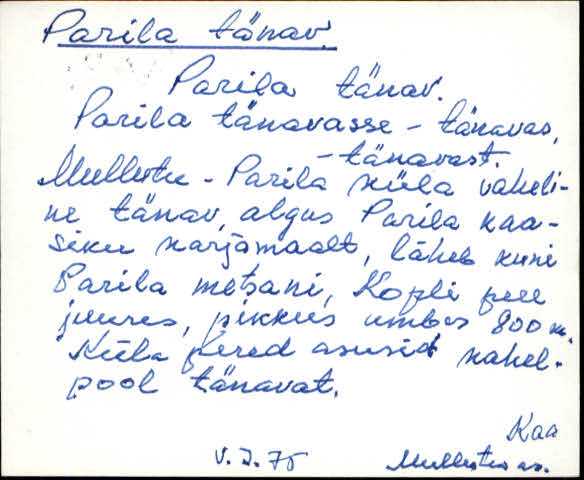 Parila tänav.
Parila tänav.
Parila tänavasse - tänavas,
- tänavast.
Mullutu - Parila küla vaheli-
ne tänav, algus Parila kaa-
siku karjamaalt, läheb kuni
Parila metsani, Kopli pere
juures, pikkus umbes 800 m.
Küla pered asusid kahel-
pool tänavat.
Kaa
V. I. 75
Mullutu as.